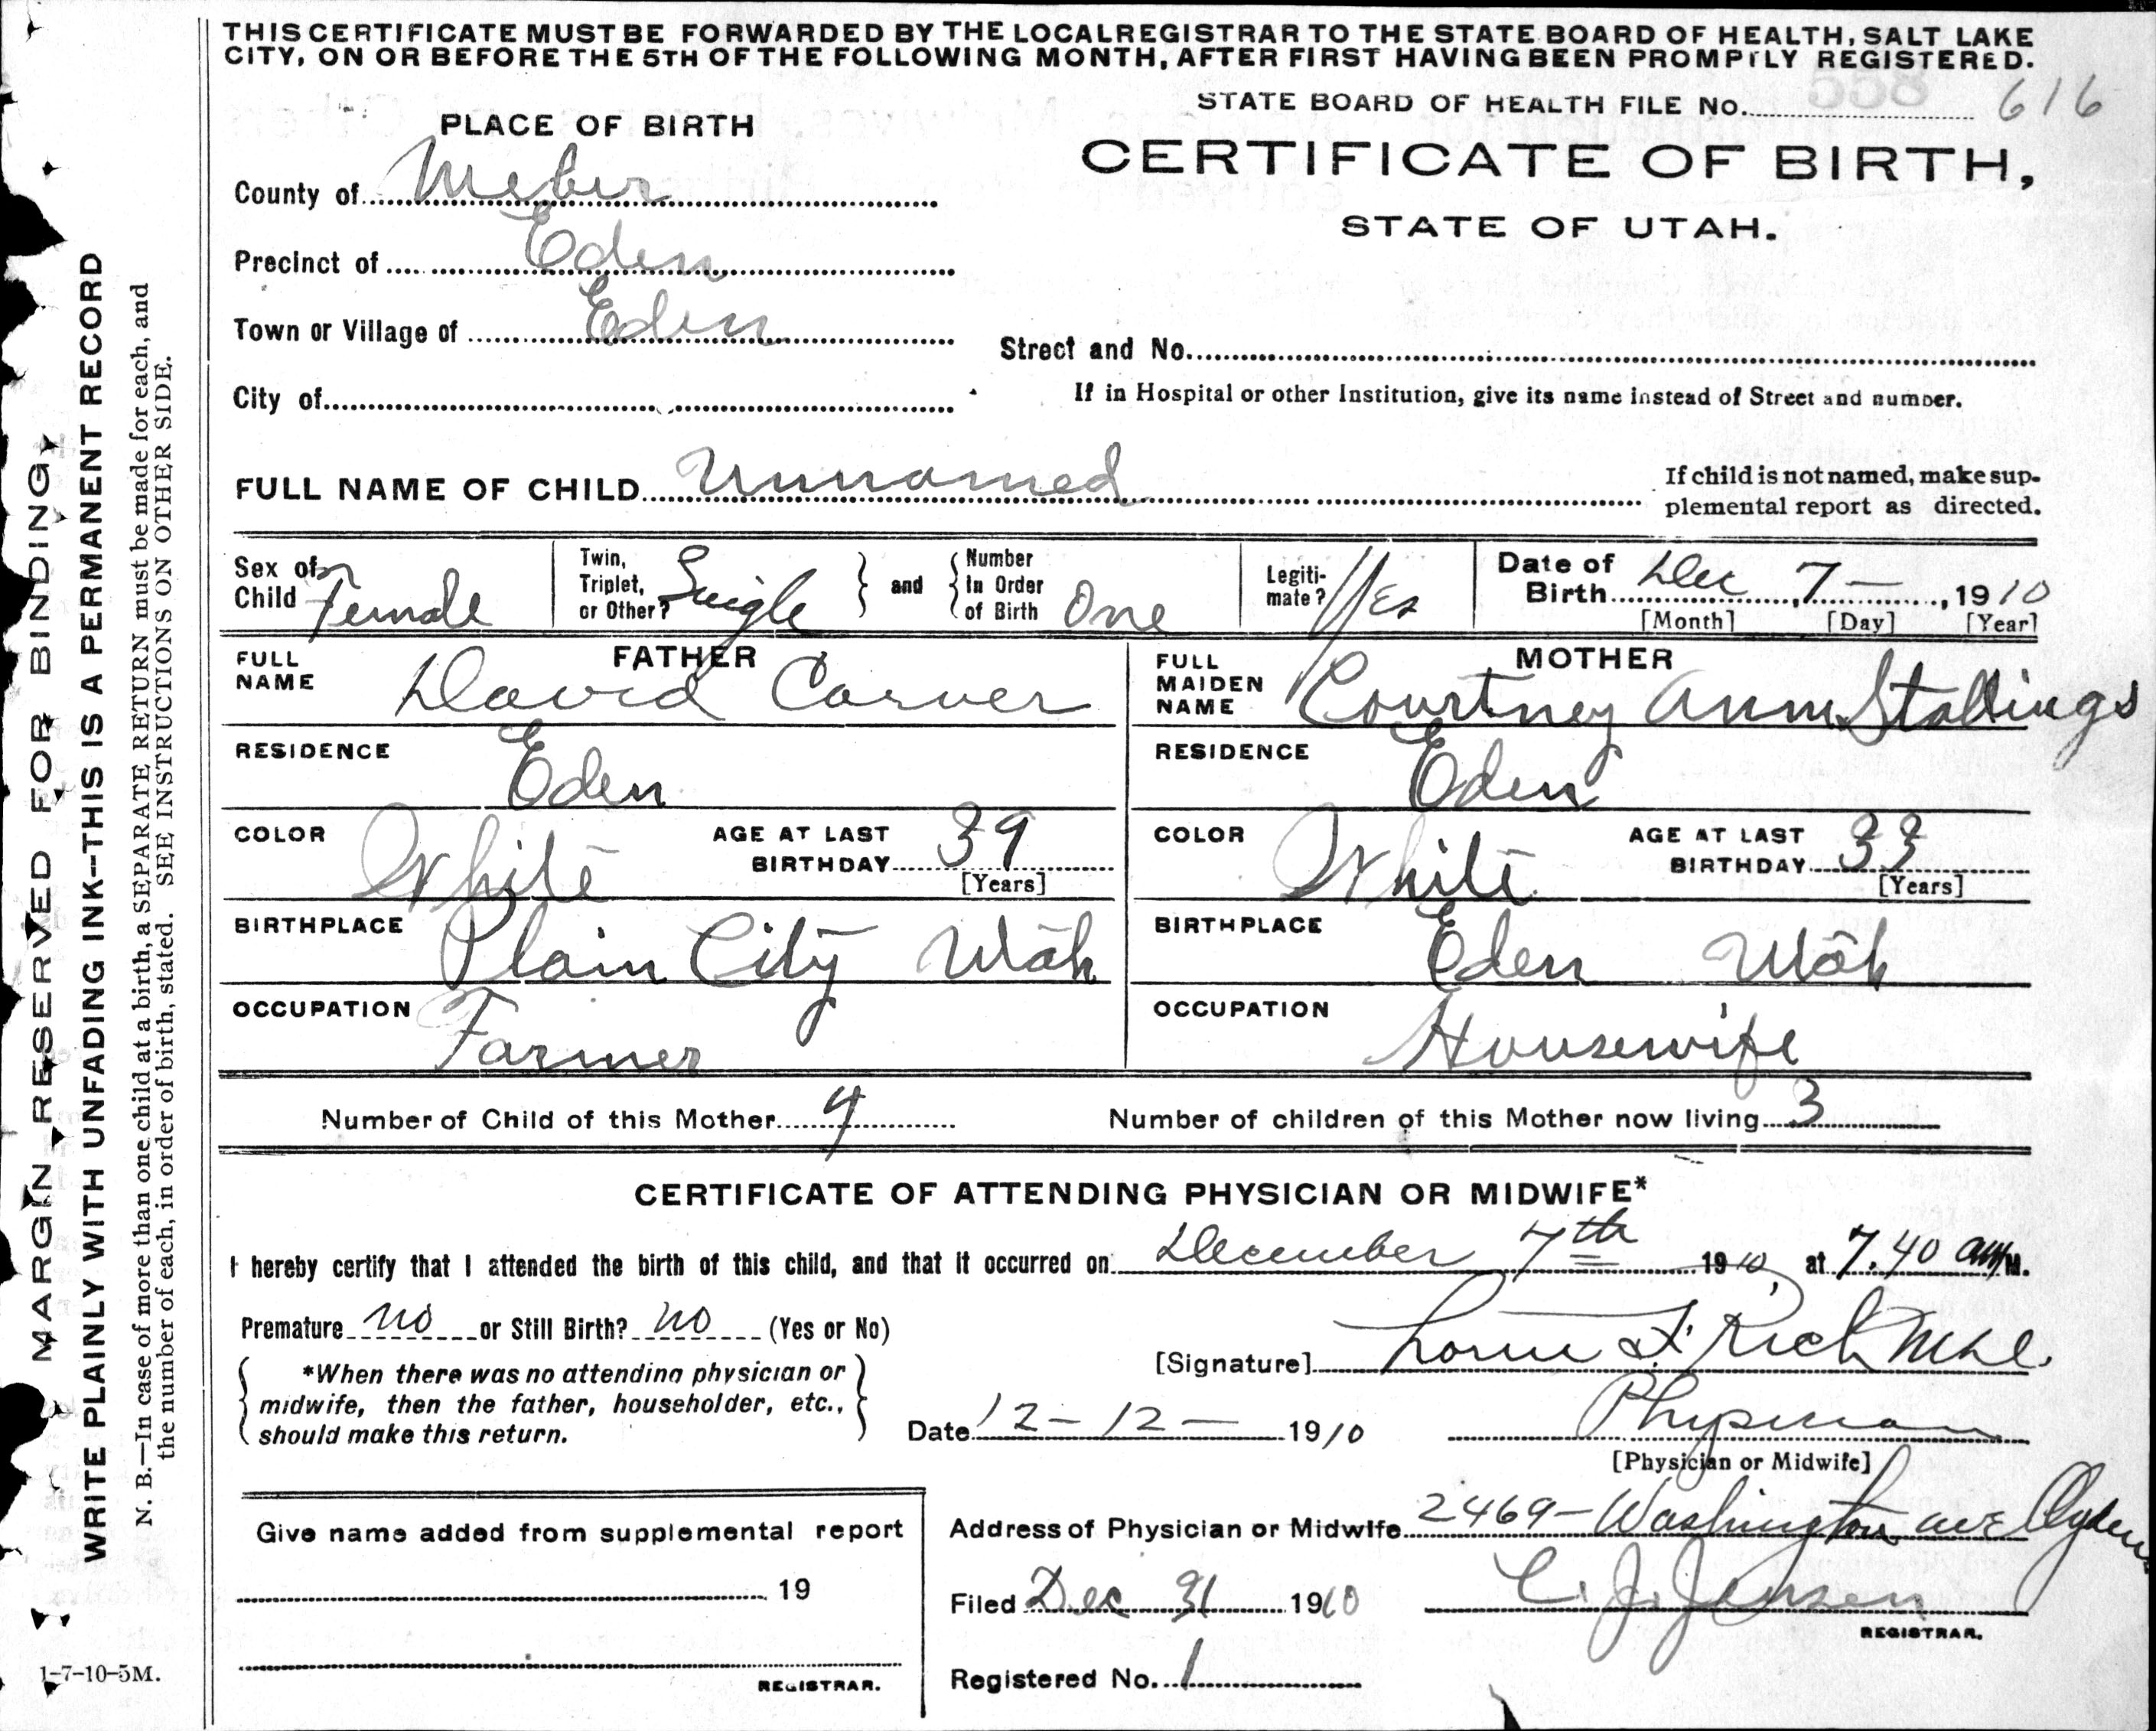 THIS CERTIFICATE MUST BE FORWARDED BY THE LOCAL REGISTRAR TO THE STATE BOARD OF HEALTH, SALT LAKE
CITY, ON OR BEFORE THE 5TH OF THE FOLLOWING MONTH, AFTER FIRST HAVING BEEN PROMPTLY REGISTERED.
STATE BOARD OF HEALTH FILE No. 558 616
PLACE OF BIRTH
CERTIFICATE OF BIRTH,
STATE OF UTAH.
County of Weber
Precinct of Eden
Town or Village of Eden
Street and No.
City of
If in Hospital or other Institution, give its name instead of Street and number.
FULL NAME OF CHILD Unnamed
If child is not named, make sup-
plemental report as directed.
Sex of Child Female
Twin, Triplet, or Other? Single
and Number In Order of Birth One
Legiti-mate? Yes
Date of Birth Dec 7 - , 1910
[Month] [Day] [Year]
FATHER
FULL NAME David Carver
RESIDENCE Eden
COLOR White
AGE AT LAST BIRTHDAY 39 [Years]
BIRTHPLACE Plain City Utah
OCCUPATION Farmer
MOTHER
FULL MAIDEN NAME Courtney Ann Stallings
RESIDENCE Eden
COLOR White
AGE AT LAST BIRTHDAY 33 [Years]
BIRTHPLACE Eden Utah
OCCUPATION Housewife
Number of Child of this Mother 4
Number of children of this Mother now living 3
CERTIFICATE OF ATTENDING PHYSICIAN OR MIDWIFE*
I hereby certify that I attended the birth of this child, and that it occurred on December 7th 1910, at 7.40 am M.
Premature no or Still Birth? no (Yes or No)
*When there was no attending physician or
midwife, then the father, householder, etc.,
should make this return.
[Signature] Rich
Date 12 - 12 - 1910
Physician
[Physician or Midwife]
Give name added from supplemental report
19
REGISTRAR.
Address of Physician or Midwife 2469 - Washington ave Ogden
Filed Dec 31 1910
C. J. Jensen
REGISTRAR.
Registered No. 1
MARGIN RESERVED FOR BINDING,
WRITE PLAINLY WITH UNFADING INK--THIS IS A PERMANENT RECORD
N. B.—In case of more than one child at a birth, a SEPARATE RETURN must be made for each, and
the number of each, in order of birth, stated. SEE INSTRUCTIONS ON OTHER SIDE.
1-7-10-5M.